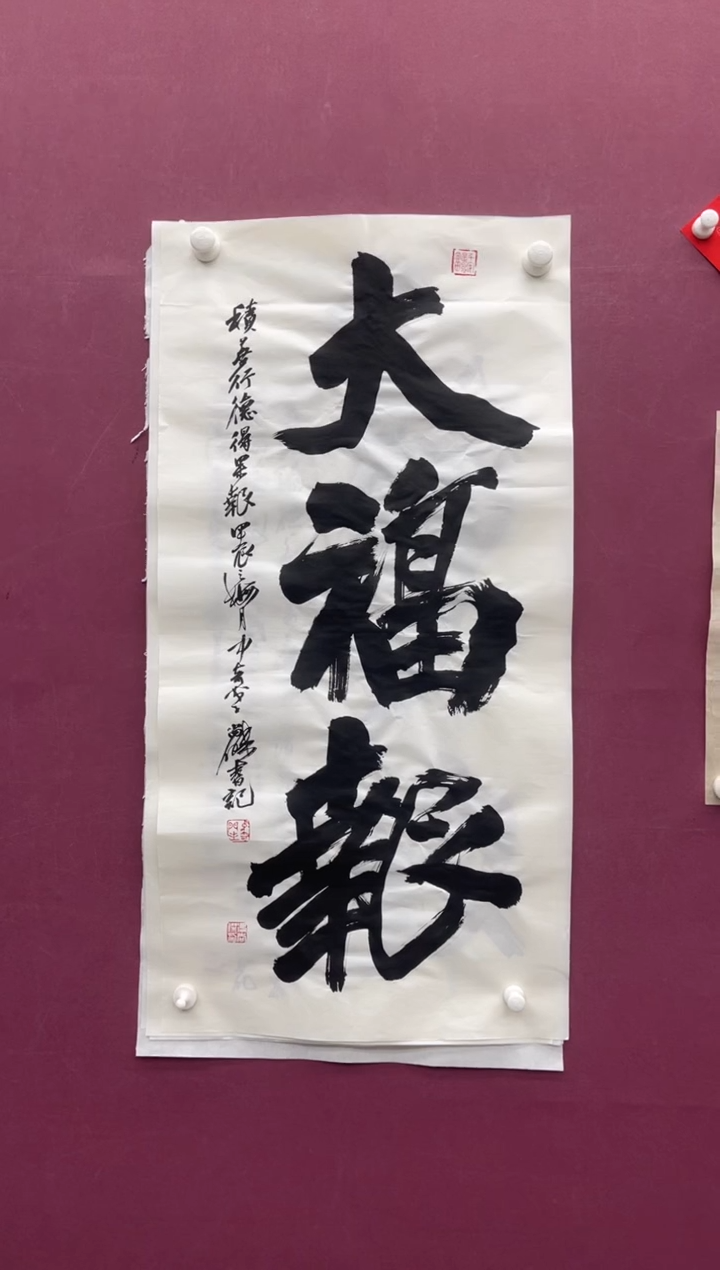 大福報
積善行德得果報甲辰三月書記